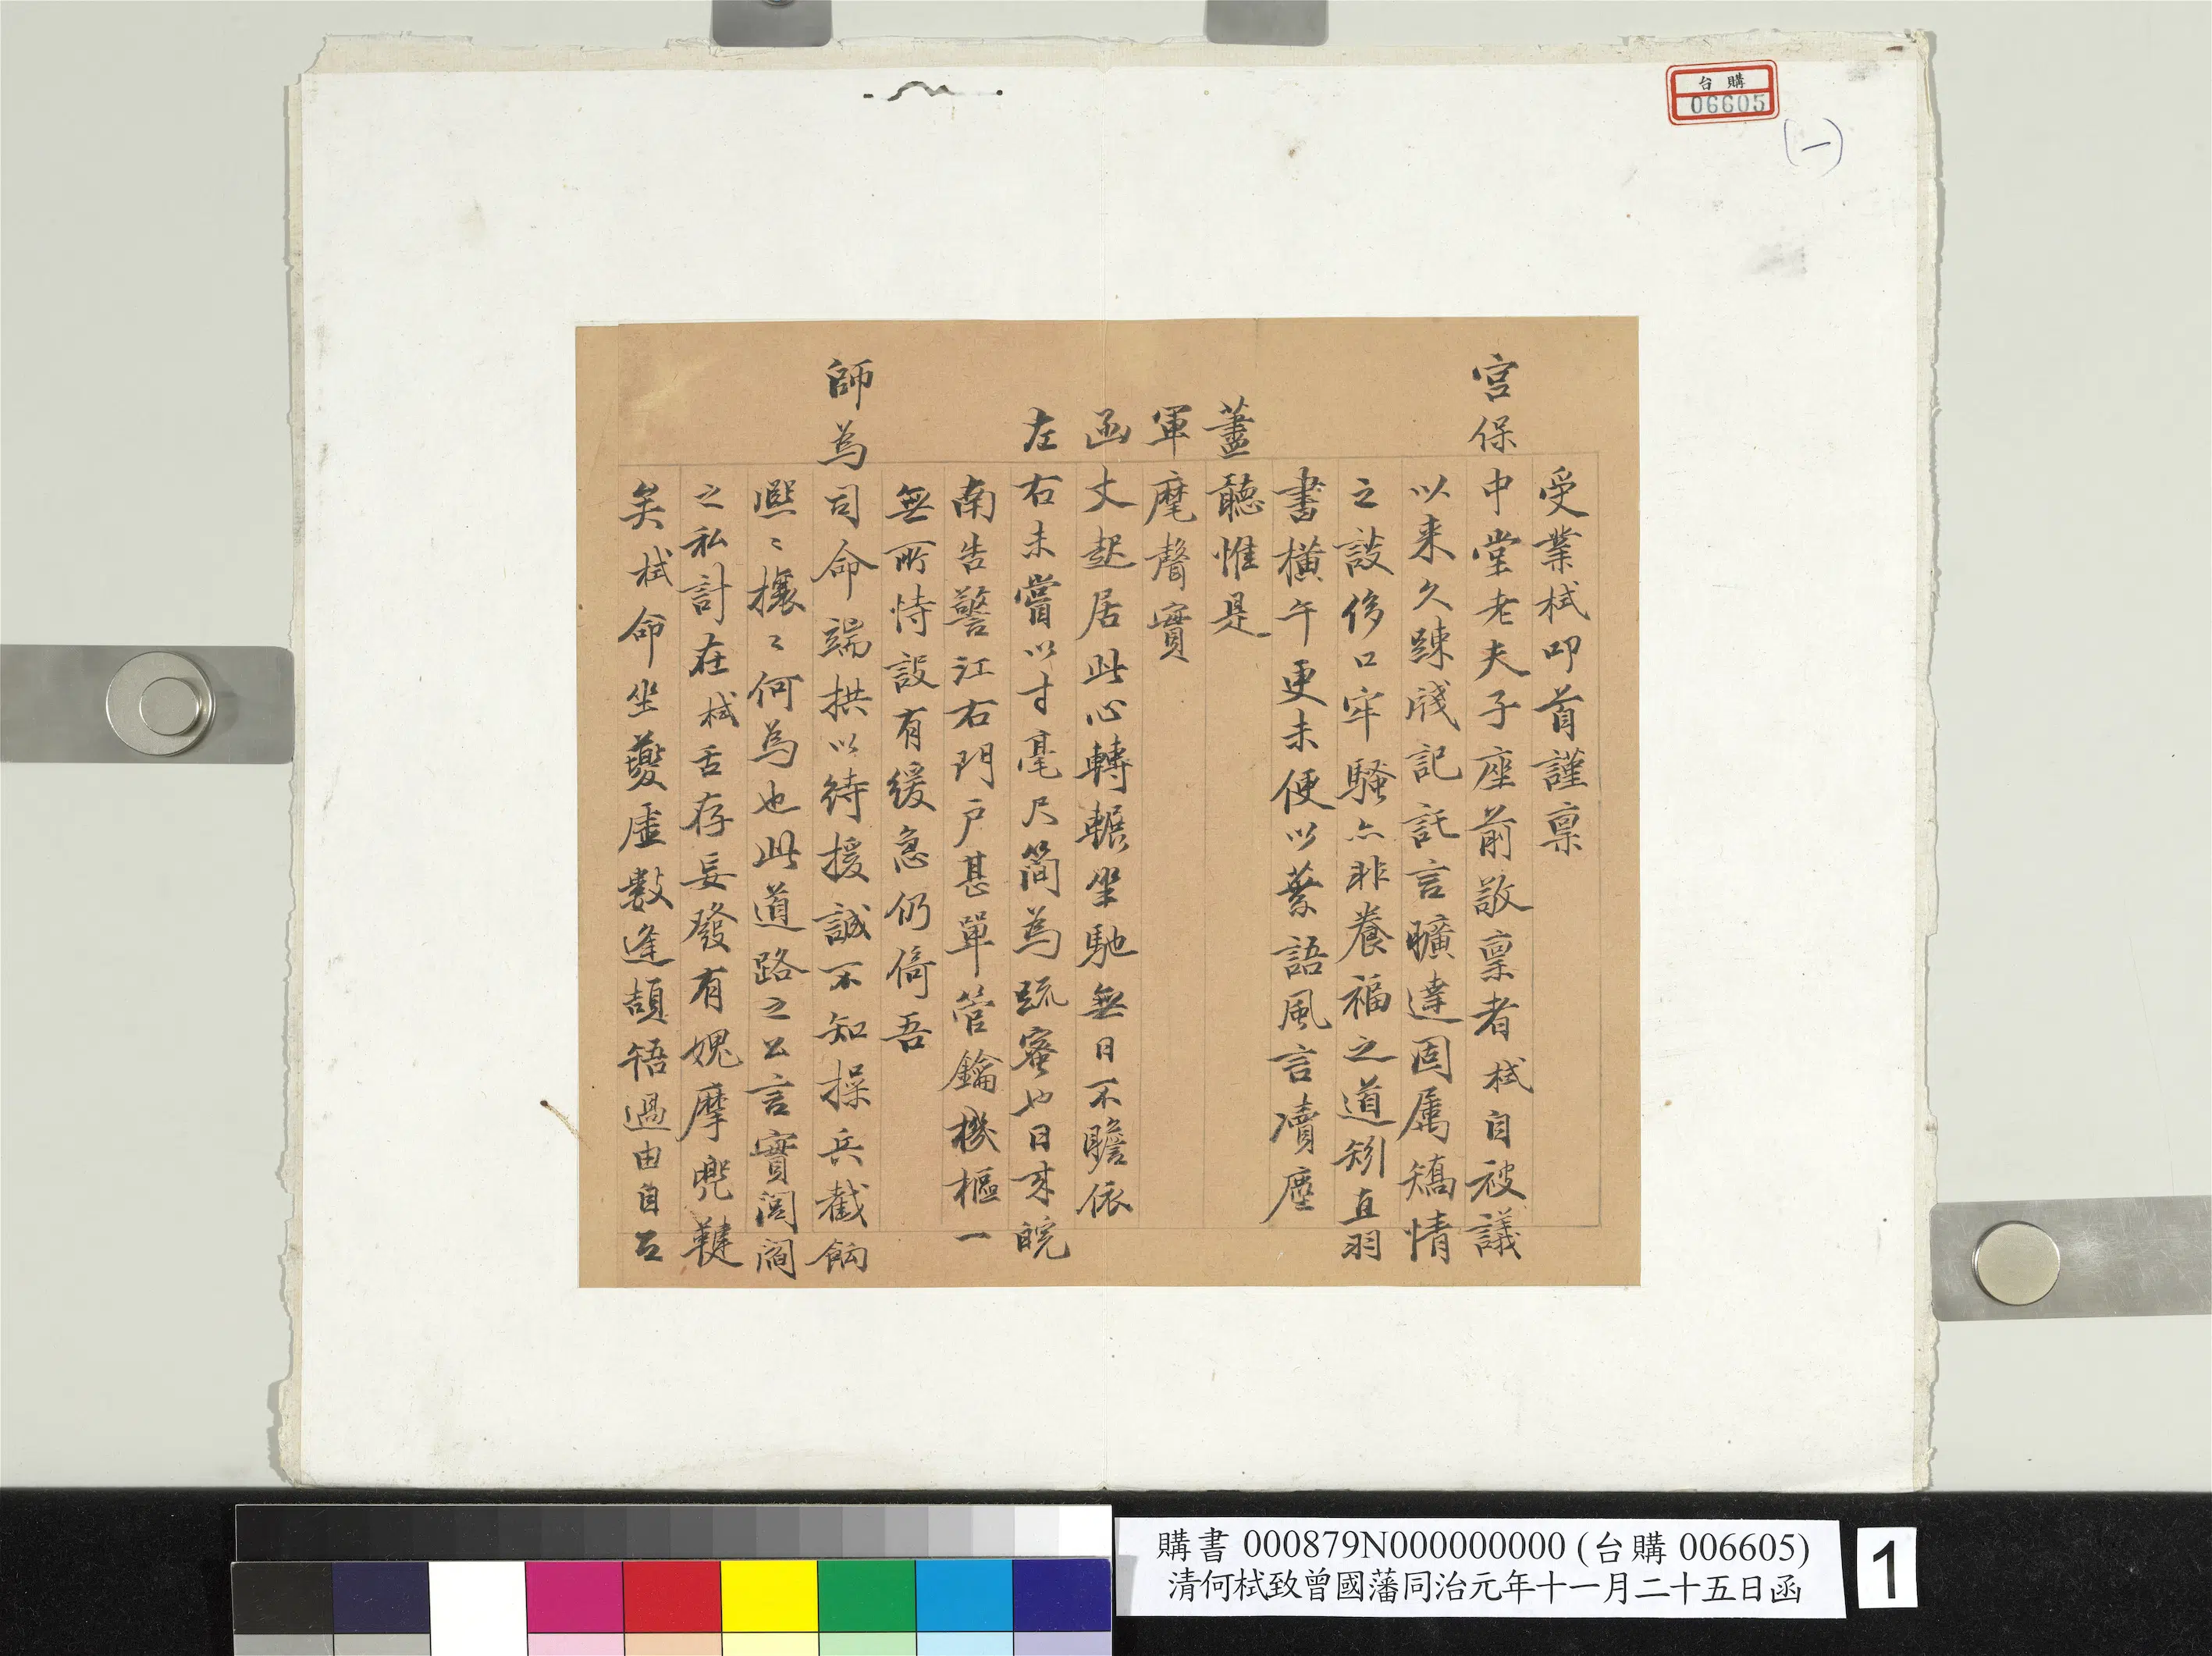 台購
06605
(一)
受業栻叩首謹稟
宮保中堂老夫子座前敬稟者栻自被議
以来久踈牋記託言曠達固属矯情
之設侈口牢騷亦非養福之道矧直羽
書橫午更未便以蔡語風言瀆塵
藎聽惟是
軍麾聲實
函丈起居此心轉輾坐馳無日不瞻依
左右未嘗以寸毫尺簡為疏蜜也日来皖
南告警江右門戶甚單管鑰機樞一
無所恃設有緩急仍倚吾
師為司命端拱以待援誠不知操兵截餉
熙〻攘〻何為也此道路之公言實閭閻
之私計在栻舌存妄發有媿摩兜鞬
矣栻命坐虛數逢頡牾過由自
購書 000879N000000000 (台購 006605)
清何栻致曾國藩同治元年十一月二十五日函
1